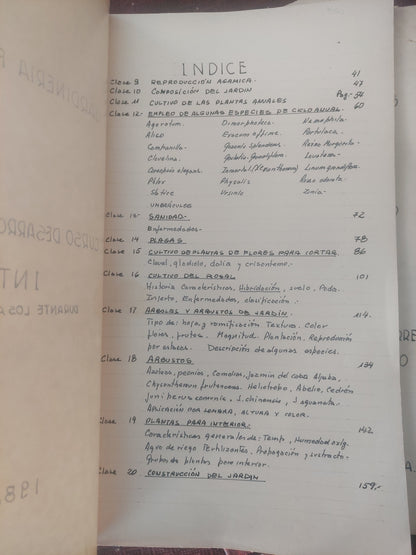 INDICE
Clase 9 REPRODUCCIÓN AGAMICA.- 41
Clase 10 COMPOSICIÓN DEL JARDIN 47
Clase 11 CULTIVO DE LAS PLANTAS ANUALES Pag.- 54
Clase 12- EMPLEO DE ALGUNAS ESPECIES DE CICLO ANUAL. 60
Ageratum. Dimorphoteca Nemophila.
Aliso Portulaca.
Campanilla- splendens. Reina Margarita-
Clavelina. grandiflora.
Coreopsis elegans. Inmortal (Xeranthemum) Linum grandiflora
Phlox Physalis Reseda odorata.
Statice Ursinia Zinia.
UMBRÁCULOS
Clase 13- SANIDAD.- 72
Enfermedades.-
Clase 14 PLAGAS 78
Clase 15 CULTIVO DE PLANTAS DE FLORES PARA CORTAR. 86
Clavel, gladiolo, dalia y crisantemo.-
Clase 16 CULTIVO DEL ROSAL 101
Historia Características, Hibridación, suelo, Poda.
Injerto, Enfermedades, clasificación.-
Clase 17 ARBOLES Y ARBUSTOS DE JARDÍN.- 114.
Tipo de: hoja, y ramificación Textura. Color
flores, frutos. Magnitud. Plantación. Reproducción
por estacas. Descripción de algunas especies.
Clase 18 ARBUSTOS 134
Azaleas, peonias, Camelias, jazmin del cabo
Chrysanthemum frutescens. Heliotropo, Abelia, Cedrón
juniperus communis, J. chinensis, J. squamata.-
APLICACION POR SOMBRA, ALTURA Y COLOR.
Clase 19 PLANTAS PARA INTERIOR.- 142
Características generales de: Temp, Humedad
Agua de riego Fertilizantes, Propagación y sustrato.-
Grupos de plantas para interior.-
Clase 20 CONSTRUCCIÓN DEL JARDIN 159.-
CURSO
INT
DURANTE LOS
198